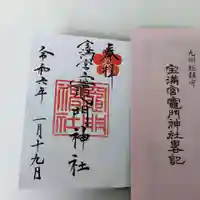 奉拝
宝満宮竈門神社
竈門神社
令和六年一月十九日
九州総鎮守
宝満宮竈門神社畧記